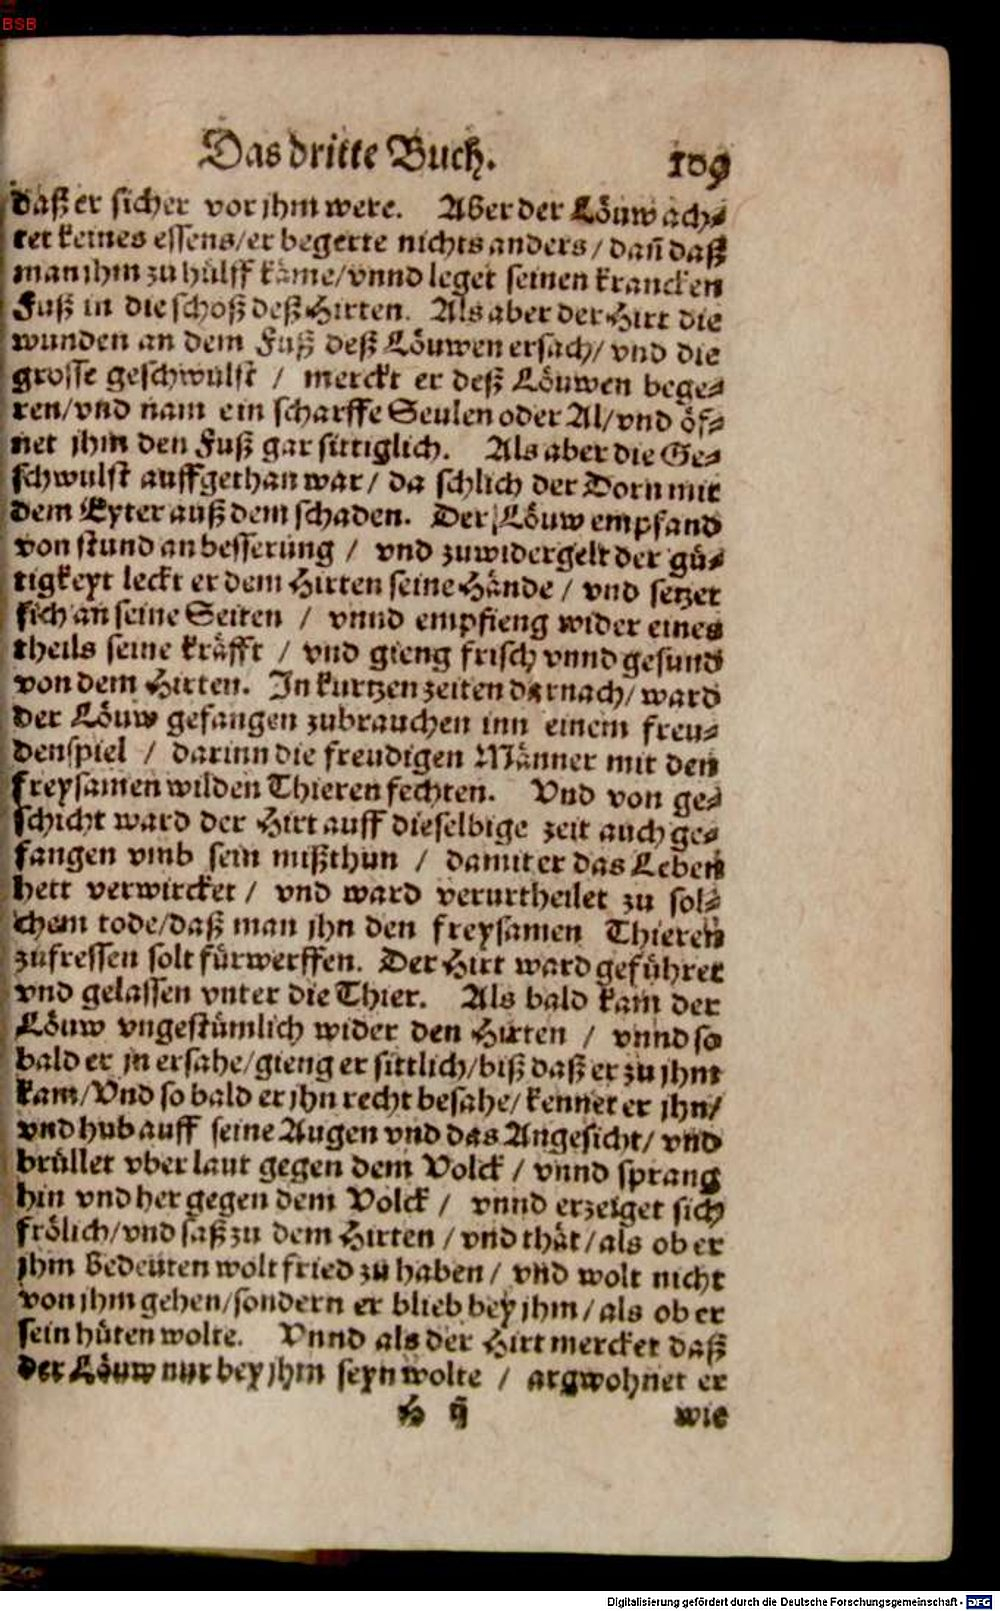 BSB
Das dritte Buch. 109
daß er sicher vor jhm were. Aber der Löuw ach⸗
tet keines essens/er begerte nichts anders/dañ daß
man jhm zu hülff käme/vnnd leget seinen krancken
Fuß in die schoß deß Hirten. Als aber der Hirt die
wunden an dem Fuß deß Löuwen ersach/ vnd die
grosse geschwulst / merckt er deß Löuwen bege⸗
ren/vnd nam ein scharffe Seulen oder Al/vnd öf⸗
net jhm den Fuß gar sittiglich. Als aber die Ge⸗
schwulst auffgethan war/ da schlich der Dorn mit
dem Eyter auß dem schaden. Der Löuw empfand
von stund an besserung / vnd zuwidergelt der gü⸗
tigkeyt leckt er dem Hirten seine Hände / vnd setzet
sich an seine Seiten / vnnd empfieng wider eines
theils seine kräfft / vnd gieng frisch vnnd gesund
von dem Hirten. In kurtzen zeiten darnach/ ward
der Löuw gefangen zubrauchen inn einem freu⸗
denspiel / darinn die freudigen Männer mit den
freysamen wilden Thieren fechten. Vnd von ge⸗
schicht ward der Hirt auff dieselbige zeit auch ge⸗
fangen vmb sein mißthun / damit er das Leben
hett verwircket / vnd ward verurtheilet zu sol⸗
chem tode/daß man jhn den freysamen Thieren
zufressen solt fürwerffen. Der Hirt ward geführet
vnd gelassen vnter die Thier. Als bald kam der
Löuw vngestümlich wider den Hirten / vnnd so
bald er jn ersahe/gieng er sittlich/biß daß er zu jhm
kam/Vnd so bald er jhn recht besahe/ kennet er jhn/
vnd hub auff seine Augen vnd das Angesicht/ vnd
brüllet vber laut gegen dem Volck / vnnd sprang
hin vnd her gegen dem Volck / vnnd erzeiget sich
frölich/vnd saß zu dem Hirten / vnd thät/als ob er
jhm bedeuten wolt fried zu haben / vnd wolt nicht
von jhm gehen/sondern er blieb bey jhm/als ob er
sein hüten wolte. Vnnd als der Hirt mercket daß
der Löuw nur bey jhm seyn wolte / argwohnet er
H ij wie
Digitalisierung gefördert durch die Deutsche Forschungsgemeinschaft - DFG